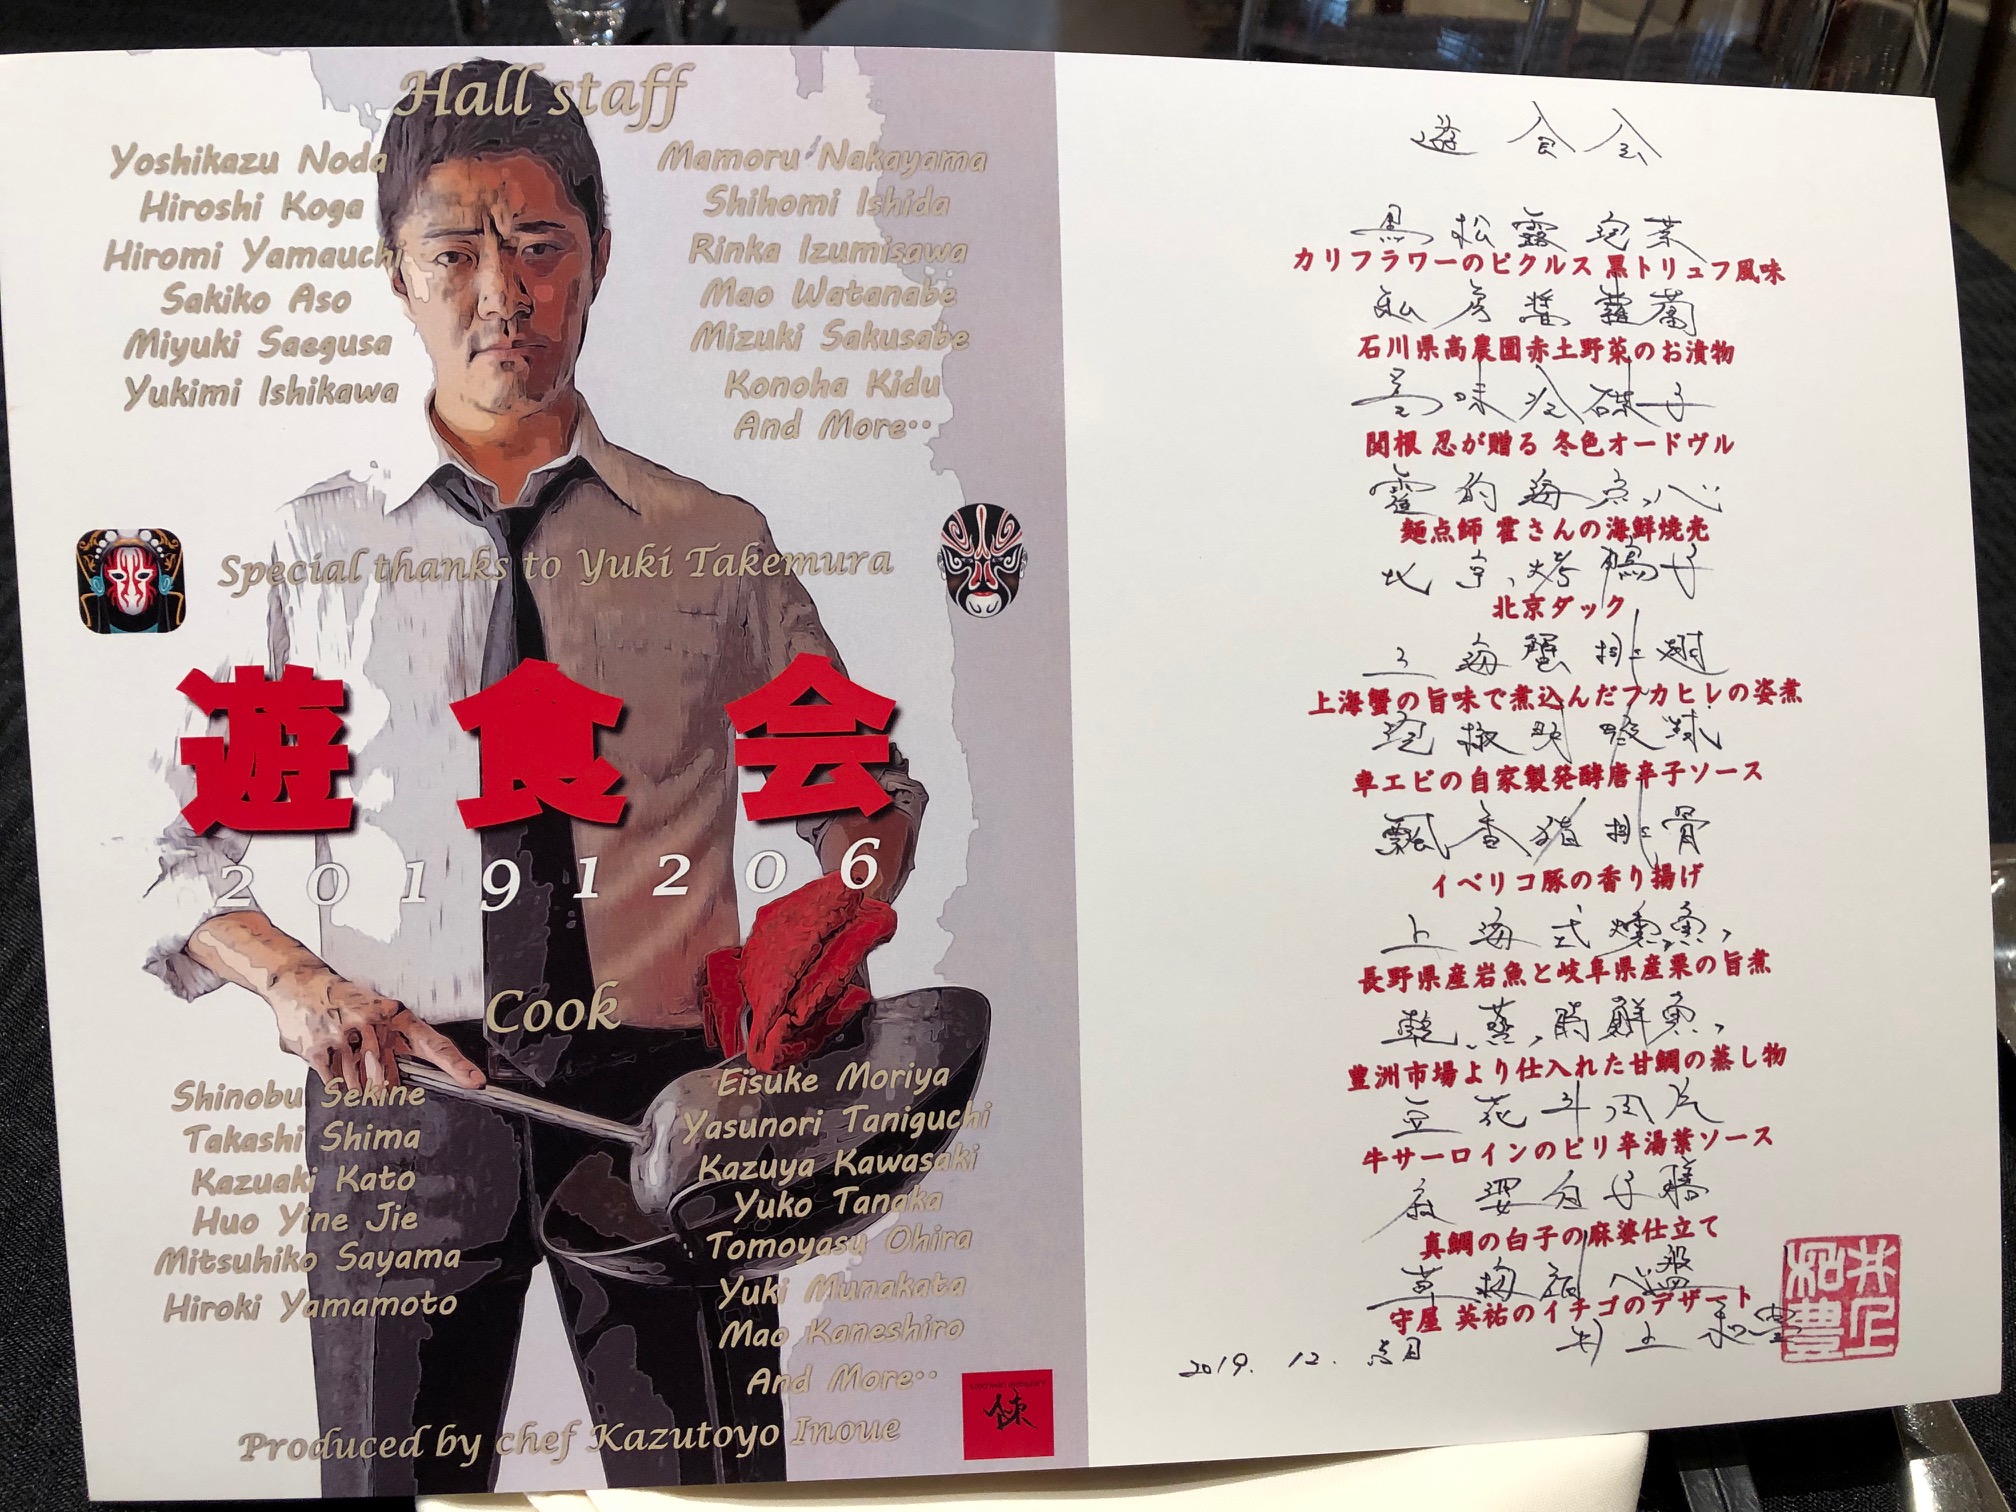 Hall staff
Yoshikazu Noda
Hiroshi Koga
Hiromi Yamauchi
Sakiko Aso
Miyuki Saegusa
Yukimi Ishikawa
Mamoru Nakayama
Shihomi Ishida
Rinka Izumisawa
Mao Watanabe
Mizuki Sakusabe
Konoha Kidu
And More‥
Special thanks to Yuki Takemura
遊食会
20191206
Cook
Shinobu Sekine
Takashi Shima
Kazuaki Kato
Huo Yine Jie
Mitsuhiko Sayama
Hiroki Yamamoto
Eisuke Moriya
Yasunori Taniguchi
Kazuya Kawasaki
Yuko Tanaka
Tomoyasu Ohira
Yuki Munakata
Mao Kaneshiro
And More‥
Produced by chef Kazutoyo Inoue
遊食会
黒松露泡菜
カリフラワーのピクルス 黒トリュフ風味
私房醤蘿蔔
石川県高農園赤土野菜のお漬物
味冷碟子
関根 忍が贈る 冬色オードヴル
霍的海点心
麺点師 霍さんの海鮮焼売
北京烤鴨子
北京ダック
上海蟹排翅
上海蟹の旨味で煮込んだフカヒレの姿煮
泡椒明蝦球
車エビの自家製発酵唐辛子ソース
飄香猪排骨
イベリコ豚の香り揚げ
上海式燻魚
長野県産岩魚と岐阜県産栗の旨煮
乾蒸時鮮魚
豊洲市場より仕入れた甘鯛の蒸し物
豆花牛肉片
牛サーロインのピリ辛湯葉ソース
麻婆白子
真鯛の白子の麻婆仕立て
草梅甜心盤
守屋 英祐のイチゴのデザート
2019. 12. 吉日
井上 和豊
井上和豊